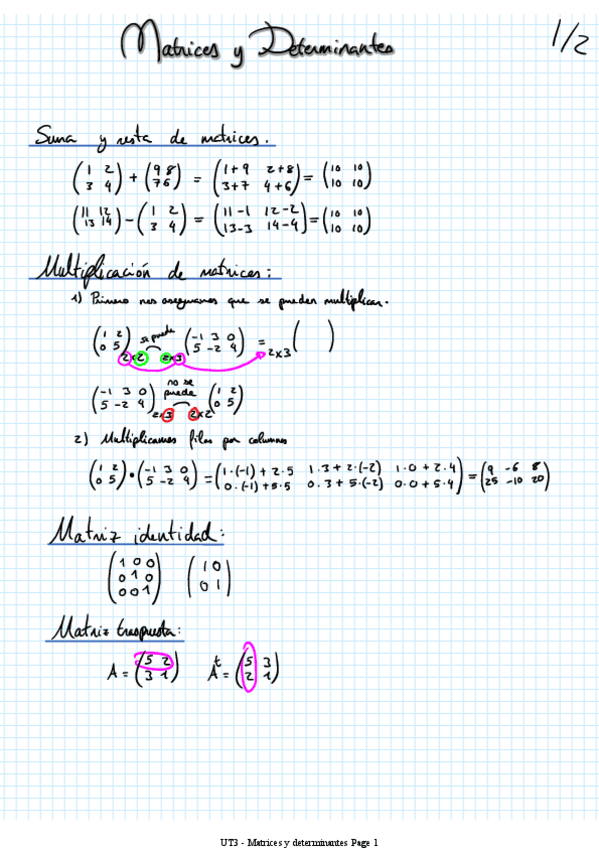 Matrices y Determinantes
1/2
Suma y resta de matrices.
(1 2 / 3 4) + (9 8 / 7 6) = (1+9 2+8 / 3+7 4+6) = (10 10 / 10 10)
(11 12 / 13 14) - (1 2 / 3 4) = (11-1 12-2 / 13-3 14-4) = (10 10 / 10 10)
Multiplicación de matrices:
1) Primero nos aseguramos que se pueden multiplicar.
(1 2 / 0 5) 2x2 se puede 2x3 (-1 3 0 / 5 -2 4) = 2x3 ( )
(-1 3 0 / 5 -2 4) 2x3 no se puede 2x2 (1 2 / 0 5)
2) Multiplicamos filas por columnas
(1 2 / 0 5) · (-1 3 0 / 5 -2 4) = (1·(-1)+2·5 1·3+2·(-2) 1·0+2·4 / 0·(-1)+5·5 0·3+5·(-2) 0·0+5·4) = (9 -6 8 / 25 -10 20)
Matriz identidad:
(1 0 0 / 0 1 0 / 0 0 1) (1 0 / 0 1)
Matriz traspuesta:
A = (5 2 / 3 1) Aᵗ = (5 3 / 2 1)
UT3 - Matrices y determinantes Page 1